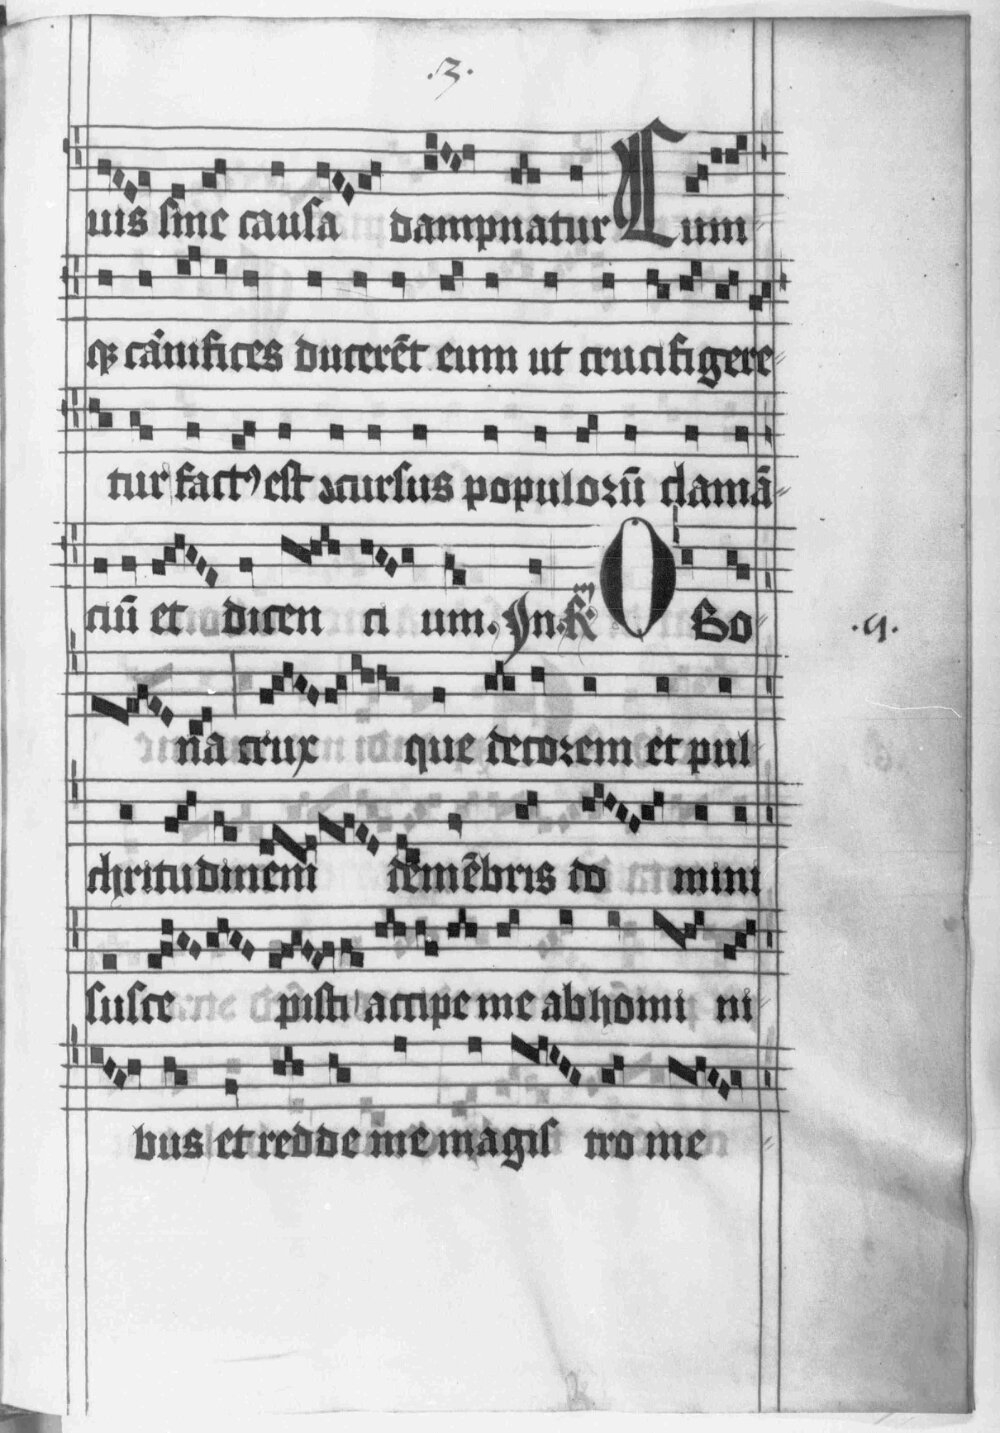 .3.
uis sine causa dampnatur Cum
qꝫ carnifices ducerēt eum ut crucifigere
tur factꝰ est ꝯcursus populoꝛū clamā
ciū et dicen ci um. In. R̃ O Bo
.9.
na crux que decoꝛem et pul
chritudinem de mēbris do mini
susce pisti accipe me ab homi ni
bus et redde me magis tro me